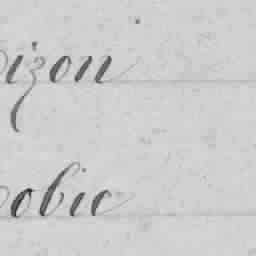 izon
obic